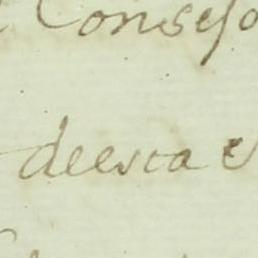 Consejo
deesta